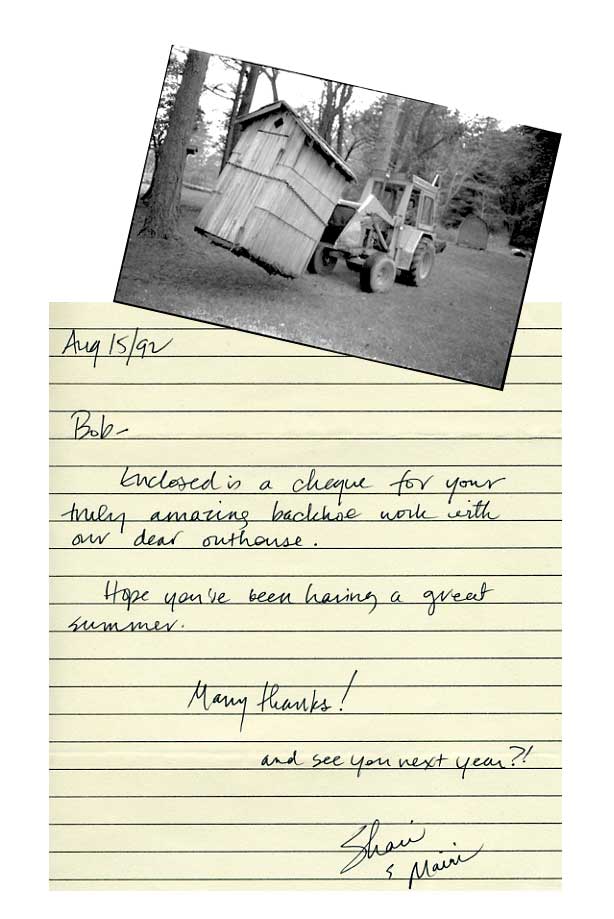 Aug 15/92
Bob-
Enclosed is a cheque for your
truly amazing backhoe work with
our dear outhouse.
Hope you've been having a great
summer.
Many thanks!
and see you next year?!
Shari
& Mairi